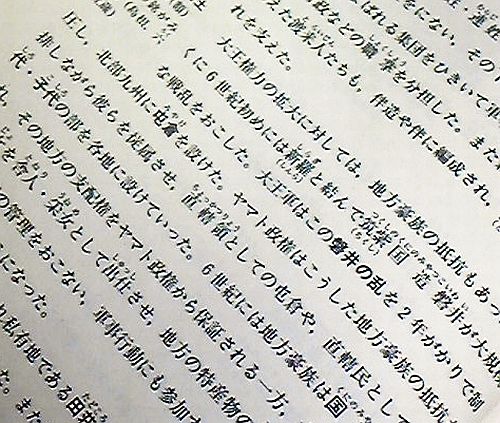 をにない、その
ばれる集団をひきいて
政などの職掌を分担した。また
えた渡来人たちも、伴造や伴に編成され、
れを支えた。
大王権力の拡大に対しては、地方豪族の抵抗もあ
くに6世紀初めには新羅と結んで筑紫国造磐井が大規
な戦乱をおこした。大王軍はこの磐井の乱を2年がかりで制
圧し、北部九州に屯倉を設けた。ヤマト政権はこうした地方豪族の抵抗
排しながら彼らを従属させ、直轄領としての屯倉や、直轄民として
代・子代の部を各地に設けていった。6世紀には地方豪族は国
その地方の支配権をヤマト政権から保証される一方、
を舎人・采女として出仕させ、地方の特産物の
の管理をおこない、軍事行動にも参加
になった。
私有地である田荘
た。また